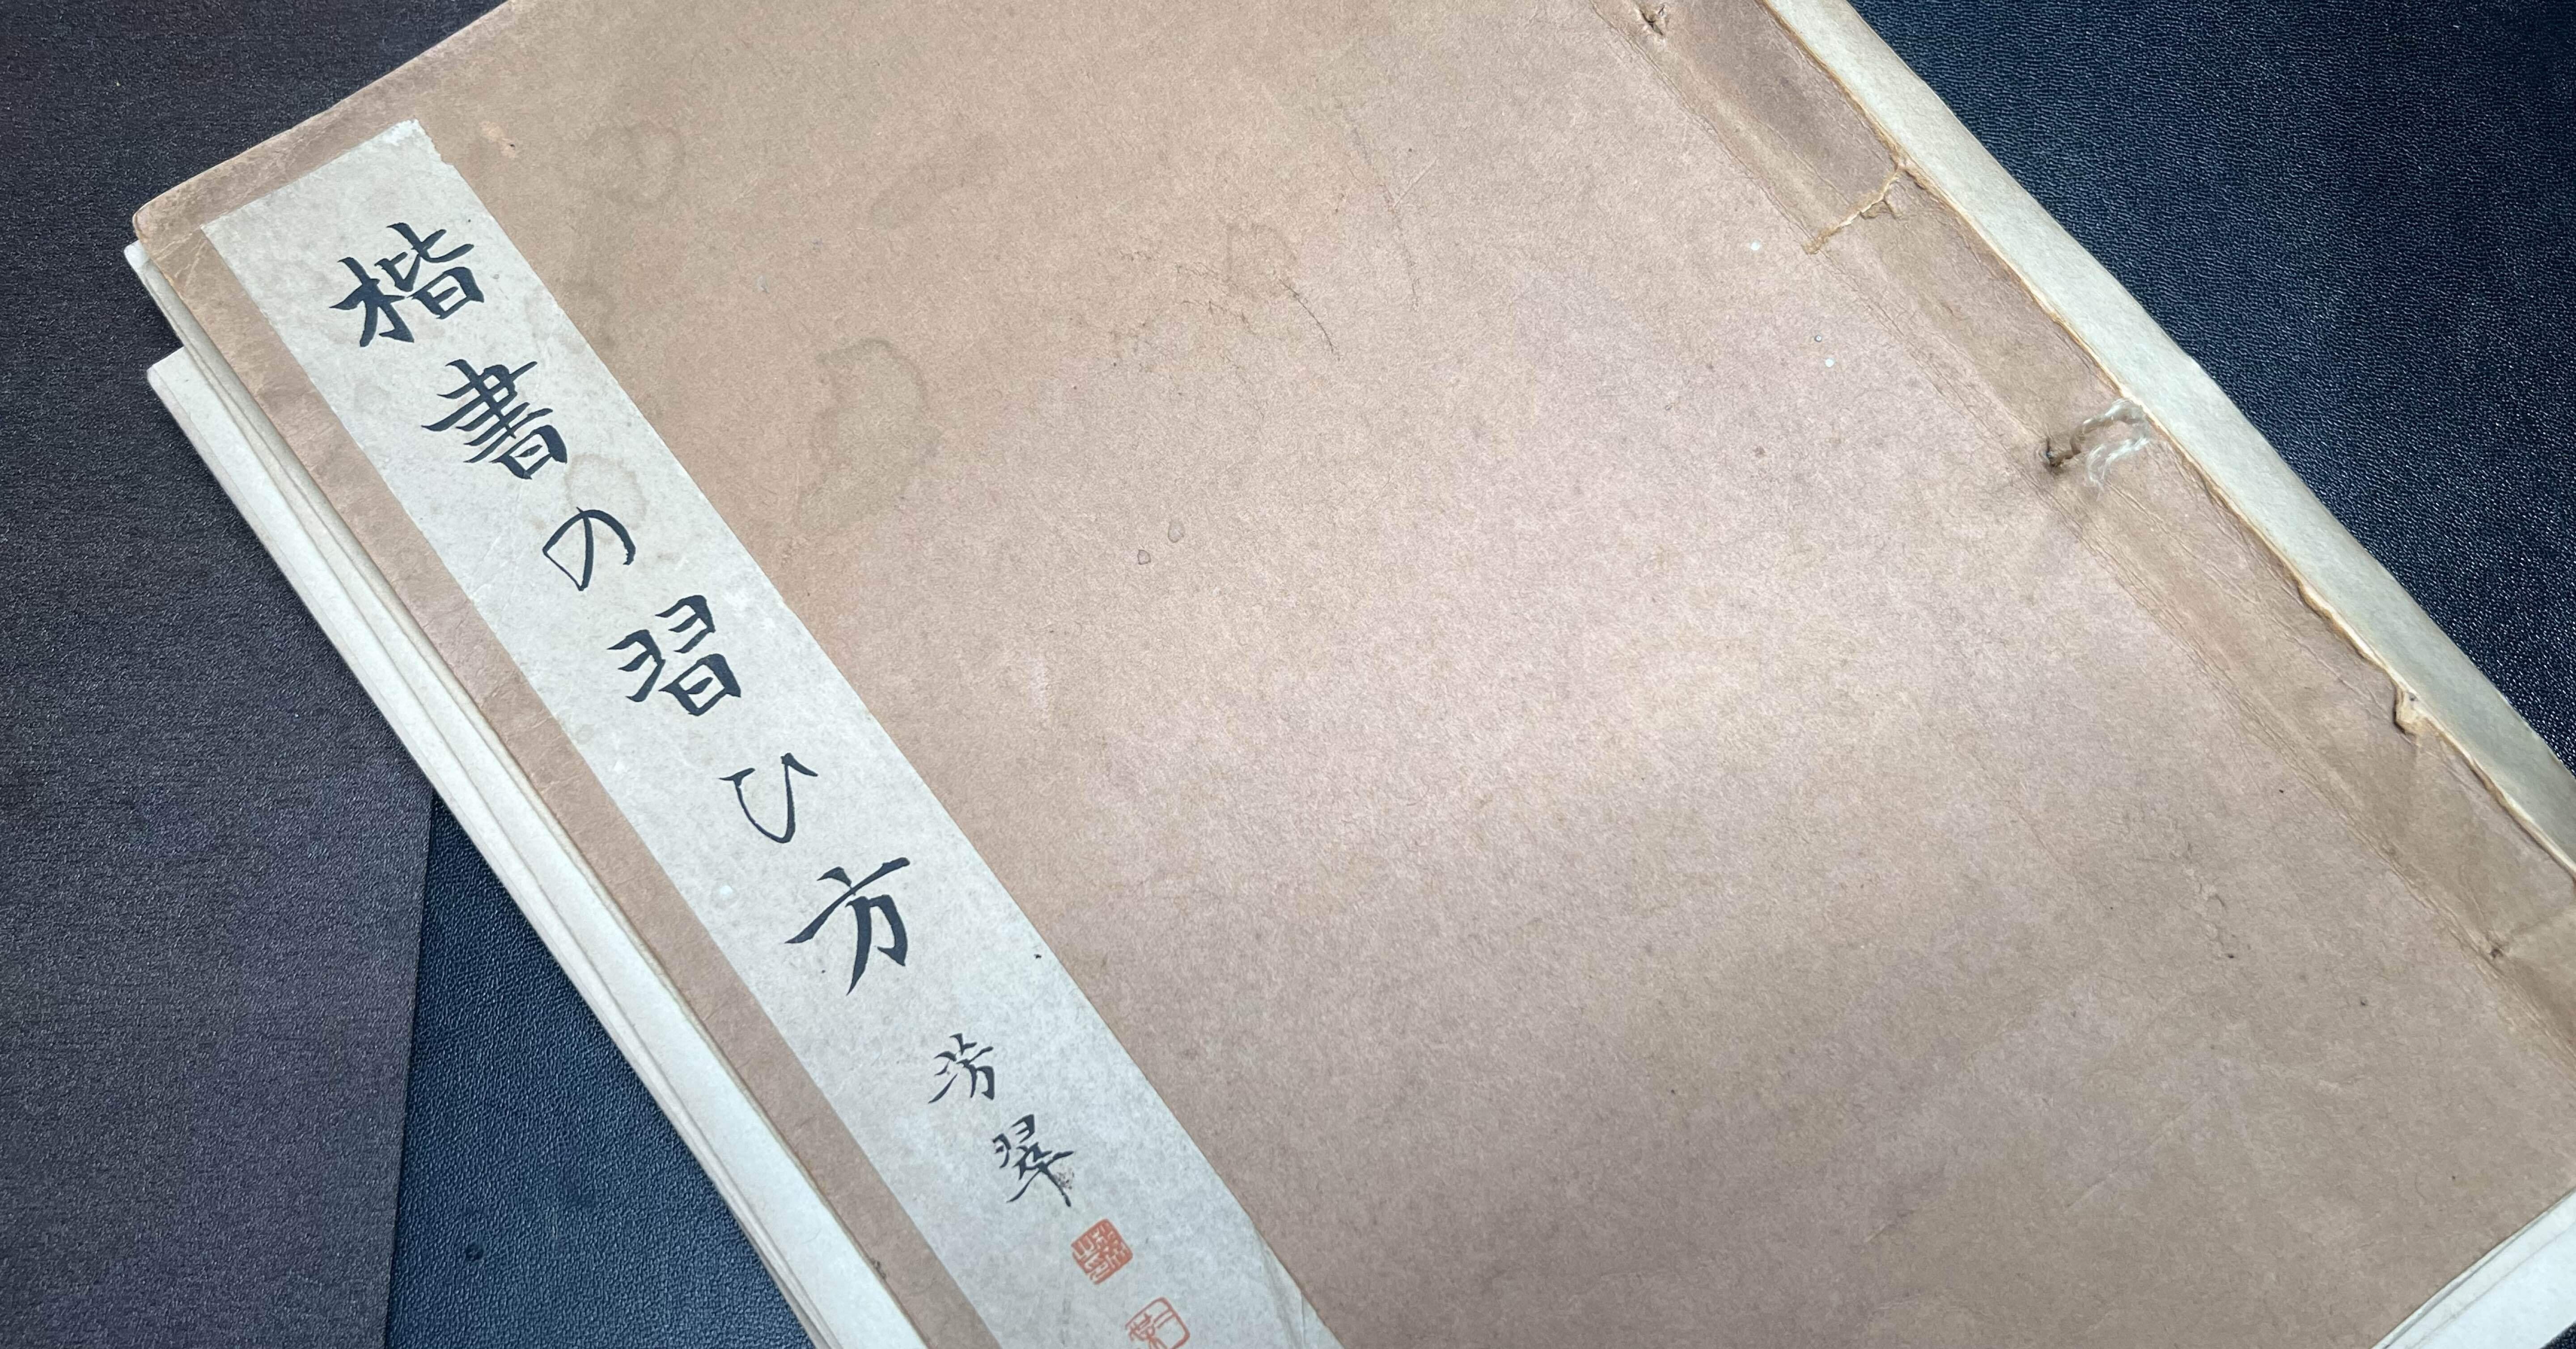 楷書の習ひ方 芳翠